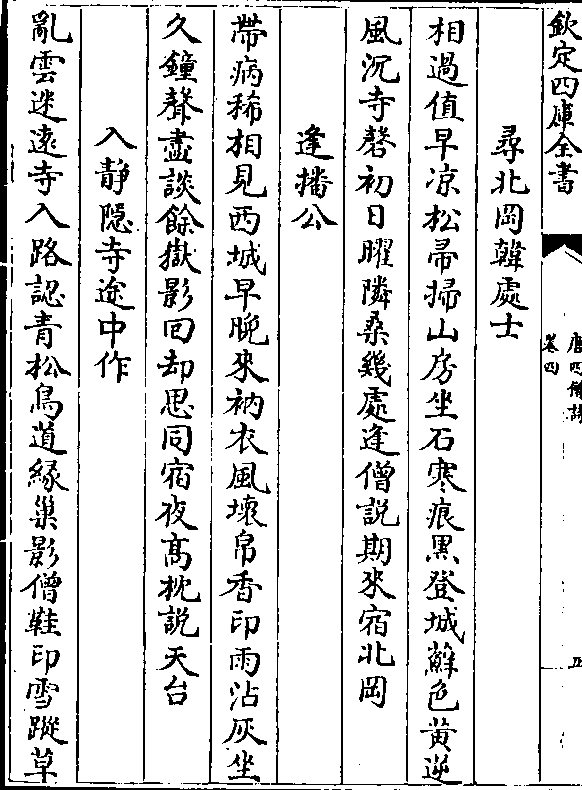 欽定四庫全書
唐四僧詩
卷四
五
尋北岡韓處士
相過值早凉松帚掃山房坐石寒痕黒登城蘚色黄逆
風沉寺磬初日曜隣桑幾處逢僧説期來宿北岡
逢播公
帶病稀相見西城早晚來衲衣風壞帛香印雨沾灰坐
久鐘聲盡談餘嶽影回却思同宿夜髙枕説天台
入靜隠寺途中作
亂雲迷遠寺入路認青松鳥道縁巢影僧鞋印雪蹤草